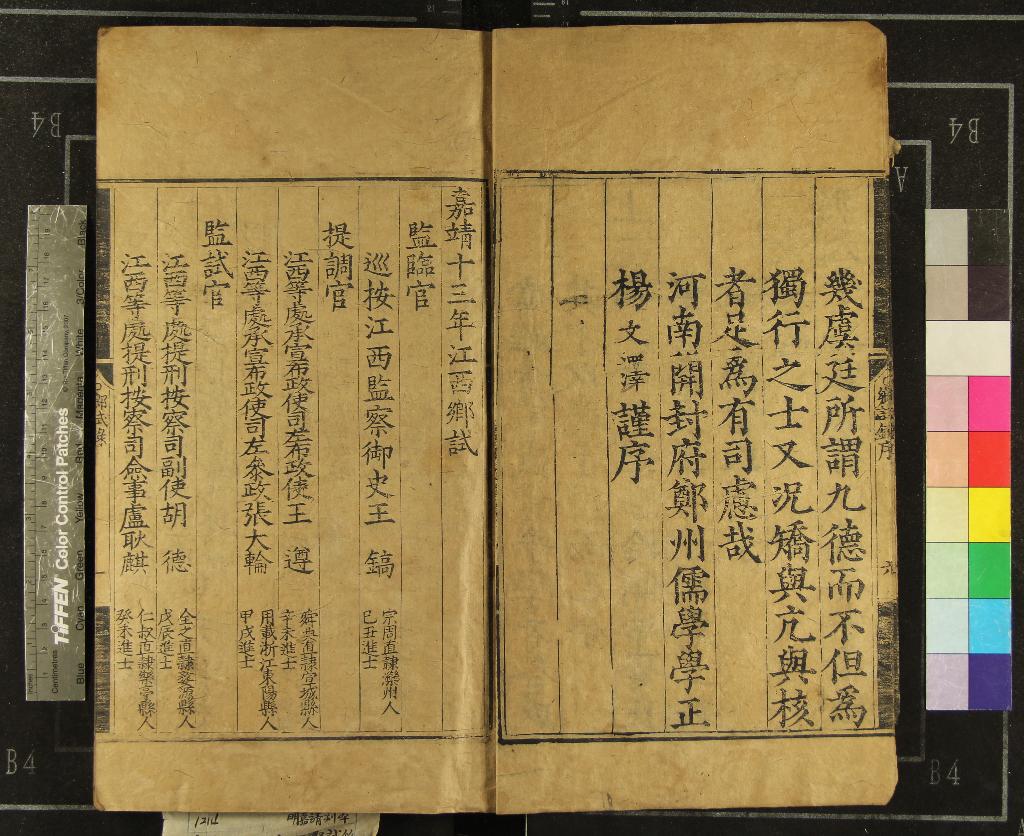 幾虞廷所謂九德而不但為
獨行之士又況矯與亢與核
者足為有司慮哉
河南開封府鄭州儒學學正
楊文澤謹序
嘉靖十三年江西鄉試
監臨官
巡按江西監察御史王 鎬
宗周直隸灤州人
己丑進士
提調官
江西等處承宣布政使司左布政使王 遵
舜典直隸宣城縣人
辛未進士
江西等處承宣布政使司左參政張大輪
用載浙江東陽縣人
甲戌進士
監試官
江西等處提刑按察司副使胡 德
全之直隸婺源縣人
戊辰進士
江西等處提刑按察司僉事盧耿麒
仁叔直隸樂亭縣人
癸未進士
TIFFEN Color Control Patches
Centimetres
Inches
Blue
Cyan
Green
Yellow
Red
Magenta
White
3/Color
Black
B4
B4
B4
B4
A